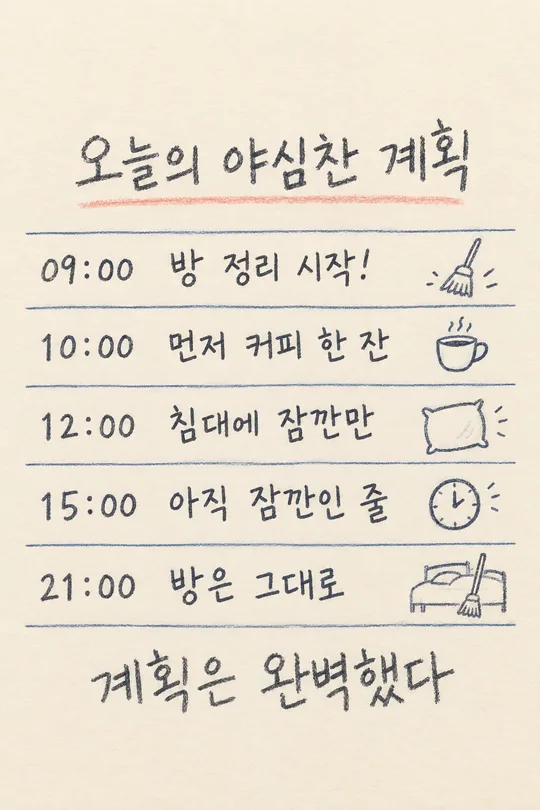 오늘의 야심찬 계획
09:00 방 정리 시작!
10:00 먼저 커피 한 잔
12:00 침대에 잠깐만
15:00 아직 잠깐인 줄
21:00 방은 그대로
계획은 완벽했다